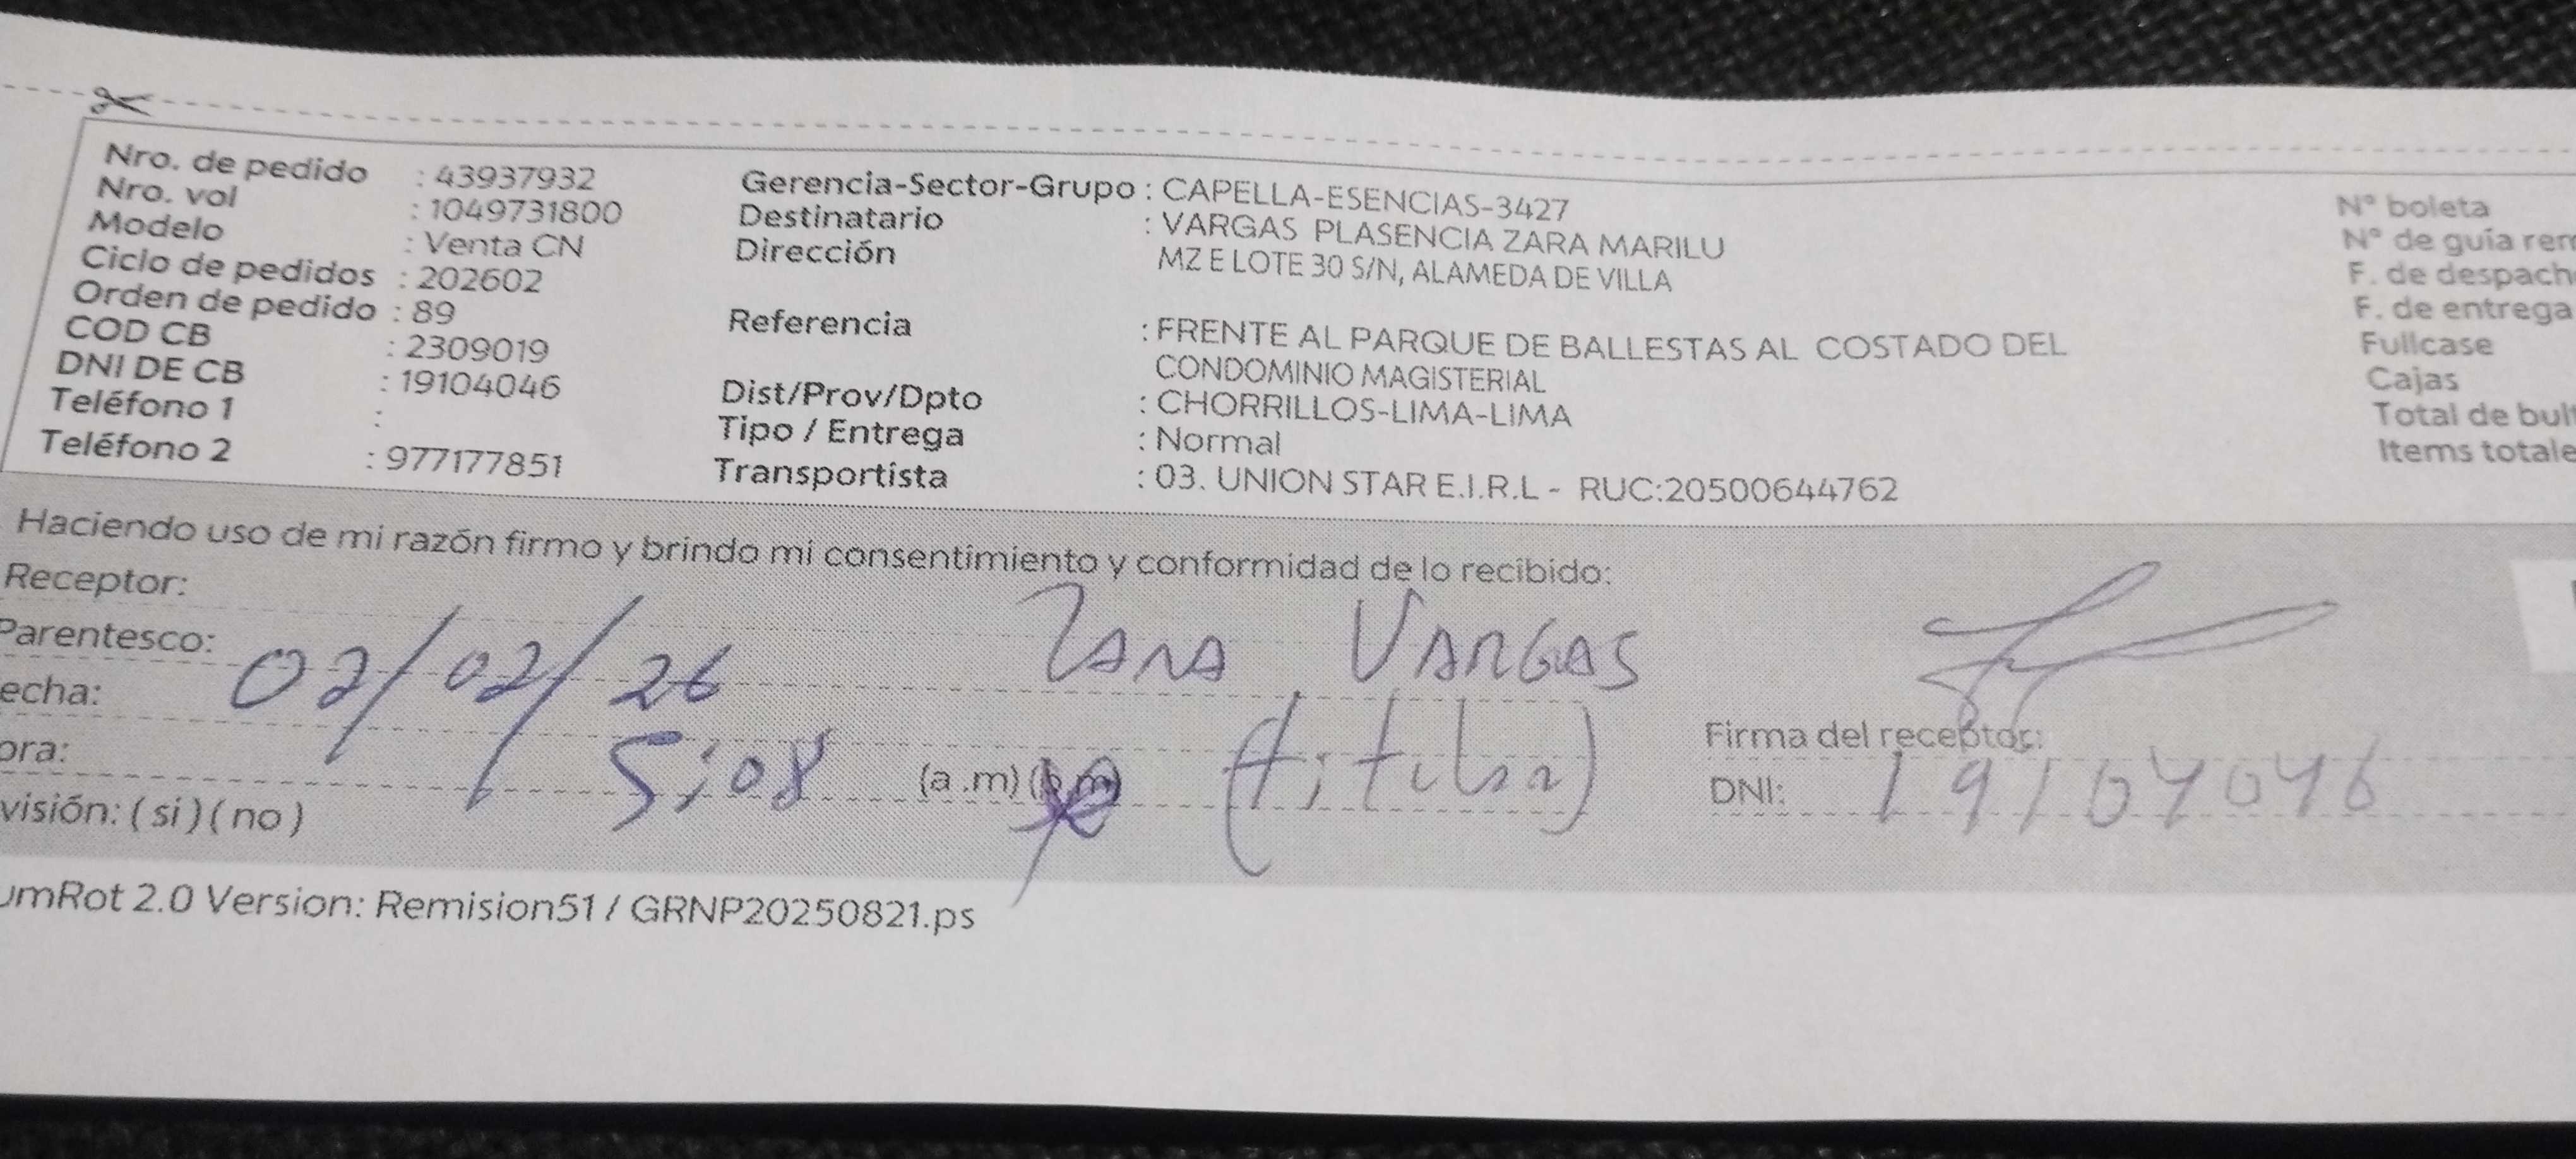 Nro. de pedido : 43937932
Nro. vol : 1049731800
Modelo : Venta CN
Ciclo de pedidos : 202602
Orden de pedido : 89
COD CB : 2309019
DNI DE CB : 19104046
Teléfono 1 :
Teléfono 2 : 977177851
Gerencia-Sector-Grupo : CAPELLA-ESENCIAS-3427
Destinatario : VARGAS PLASENCIA ZARA MARILU
Dirección MZ E LOTE 30 S/N, ALAMEDA DE VILLA
Referencia : FRENTE AL PARQUE DE BALLESTAS AL COSTADO DEL
CONDOMINIO MAGISTERIAL
Dist/Prov/Dpto : CHORRILLOS-LIMA-LIMA
Tipo / Entrega : Normal
Transportista : 03. UNION STAR E.I.R.L - RUC:20500644762
N° boleta
N° de guía rem
F. de despach
F. de entrega
Fullcase
Cajas
Total de bult
Items totale
Haciendo uso de mi razón firmo y brindo mi consentimiento y conformidad de lo recibido:
Receptor: ZARA VARGAS
Parentesco: (titular)
echa: 02/02/26
ora: 5:08 (a .m) (p.m)
visión: ( si ) ( no )
Firma del receptor:
DNI: 19104046
umRot 2.0 Version: Remision51 / GRNP20250821.ps